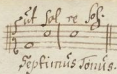 ut sol re sol.
Septimus Tonus.